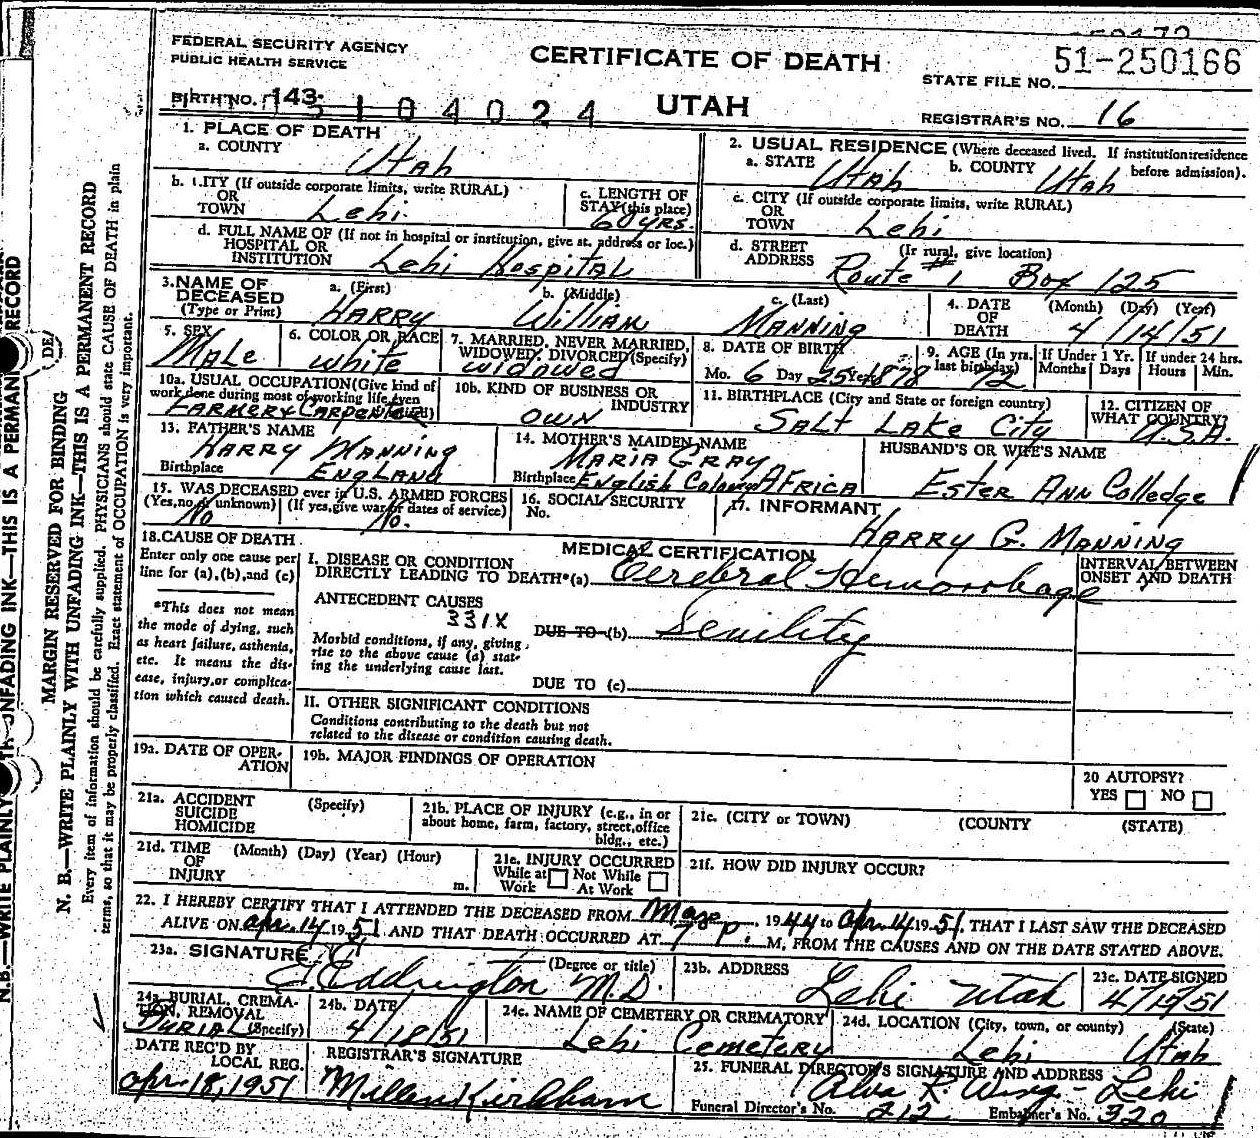 FEDERAL SECURITY AGENCY
PUBLIC HEALTH SERVICE
CERTIFICATE OF DEATH
UTAH
STATE FILE NO. 51-250166
BIRTH NO. 143- 104024
REGISTRAR'S NO. 16
1. PLACE OF DEATH
a. COUNTY Utah
2. USUAL RESIDENCE (Where deceased lived. If institution: residence before admission).
a. STATE Utah b. COUNTY Utah
b. CITY (If outside corporate limits, write RURAL) OR TOWN Lehi
c. LENGTH OF STAY (this place) 60 yrs.
c. CITY (If outside corporate limits, write RURAL) OR TOWN Lehi
d. FULL NAME OF (If not in hospital or institution, give st. address or loc.) HOSPITAL OR INSTITUTION Lehi Hospital
d. STREET ADDRESS (If rural, give location) Route # 1 Box 125
3. NAME OF DECEASED (Type or Print)
a. (First) HARRY b. (Middle) William c. (Last) MANNING
4. DATE OF DEATH (Month) (Day) (Year) 4/14/51
5. SEX MALE
6. COLOR OR RACE white
7. MARRIED, NEVER MARRIED, WIDOWED, DIVORCED (Specify) widowed
8. DATE OF BIRTH Mo. 6 Day 25 Year 1878
9. AGE (In yrs. last birthday) 72
If Under 1 Yr. Months Days
If under 24 hrs. Hours Min.
10a. USUAL OCCUPATION (Give kind of work done during most of working life, even if retired) FARMER & CARPENTER
10b. KIND OF BUSINESS OR INDUSTRY OWN
11. BIRTHPLACE (City and State or foreign country) SALT LAKE City
12. CITIZEN OF WHAT COUNTRY? U.S.A.
13. FATHER'S NAME HARRY MANNING
Birthplace ENGLAND
14. MOTHER'S MAIDEN NAME MARIA GRAY
Birthplace English Colony AFRICA
HUSBAND'S OR WIFE'S NAME
Ester Ann Colledge
15. WAS DECEASED ever in U.S. ARMED FORCES
(Yes, no, or unknown) No (If yes, give war or dates of service) No.
16. SOCIAL SECURITY No.
17. INFORMANT
HARRY G. MANNING
18. CAUSE OF DEATH
Enter only one cause per line for (a), (b), and (c)
MEDICAL CERTIFICATION
INTERVAL BETWEEN ONSET AND DEATH
I. DISEASE OR CONDITION DIRECTLY LEADING TO DEATH*(a) Cerebral Hemorrhage
*This does not mean the mode of dying, such as heart failure, asthenia, etc. It means the disease, injury, or complication which caused death.
ANTECEDENT CAUSES
331X
Morbid conditions, if any, giving rise to the above cause (a) stating the underlying cause last.
DUE TO (b) Senility
DUE TO (c)
II. OTHER SIGNIFICANT CONDITIONS
Conditions contributing to the death but not related to the disease or condition causing death.
19a. DATE OF OPERATION
19b. MAJOR FINDINGS OF OPERATION
20 AUTOPSY?
YES NO
21a. ACCIDENT SUICIDE HOMICIDE (Specify)
21b. PLACE OF INJURY (e.g., in or about home, farm, factory, street, office bldg., etc.)
21c. (CITY or TOWN) (COUNTY (STATE)
21d. TIME OF INJURY (Month) (Day) (Year) (Hour) m.
21e. INJURY OCCURRED While at Work Not While At Work
21f. HOW DID INJURY OCCUR?
22. I HEREBY CERTIFY THAT I ATTENDED THE DECEASED FROM 1944 to Apr. 14 1951, THAT I LAST SAW THE DECEASED
ALIVE ON Apr. 14 1951 AND THAT DEATH OCCURRED AT 7 P. M, FROM THE CAUSES AND ON THE DATE STATED ABOVE.
23a. SIGNATURE Eddington M.D. (Degree or title)
23b. ADDRESS Lehi Utah
23c. DATE SIGNED 4/15/51
24a. BURIAL, CREMATION, REMOVAL (Specify) BURIAL
24b. DATE 4/18/51
24c. NAME OF CEMETERY OR CREMATORY Lehi Cemetery
24d. LOCATION (City, town, or county) (State) Lehi Utah
DATE REC'D BY LOCAL REG. Apr. 18, 1951
REGISTRAR'S SIGNATURE
Kirkham
25. FUNERAL DIRECTOR'S SIGNATURE AND ADDRESS
Alva R. Wing - Lehi
Funeral Director's No. 212 Embalmer's No. 320
MARGIN RESERVED FOR BINDING
N. B.—WRITE PLAINLY WITH UNFADING INK—THIS IS A PERMANENT RECORD
Every item of information should be carefully supplied. PHYSICIANS should state CAUSE OF DEATH in plain
terms, so that it may be properly classified. Exact statement of OCCUPATION is very important.